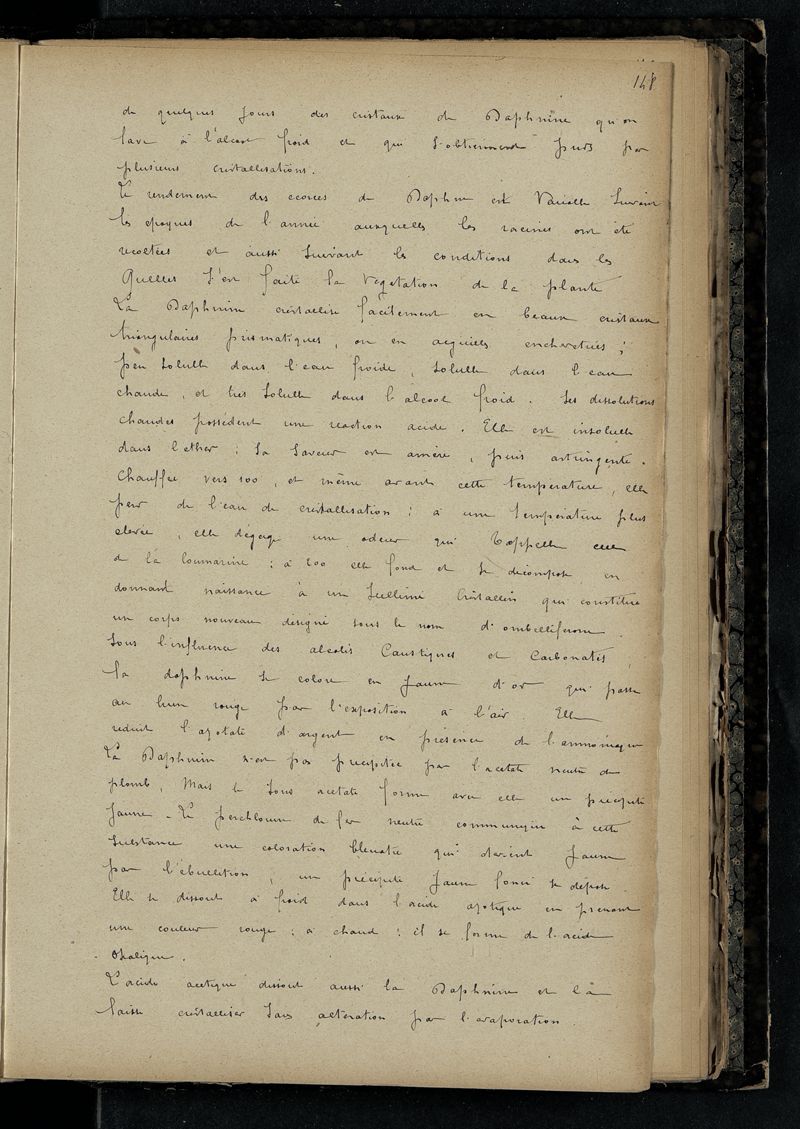 148
de quelques jours des cristaux de Daphnine qu'on
lave à l'alcool froid et qui s'obtiennent purs par
plusieurs cristallisations.
Le rendement des ecorces de Daphne est Variable Suivant
les epoques de l'année auxquelles les racines ont été
recoltées et aussi Suivant les conditions dans les
Quelles s'est faite la Vegetation de la plante
La Daphnine cristallise facilement en beaux cristaux
triangulaires prismatiques, ou en aiguilles enchevetrées;
peu soluble dans l'eau froide, soluble dans l'eau
chaude, et très soluble dans l'alcool froid. Ses dissolutions
chaudes possèdent une reaction acide. Elle est insoluble
dans l'ether; Sa Saveur est amère, puis astringente.
Chauffée vers 100, et même avant cette température, elle
perd de l'eau de cristallisation; à une température plus
elevée, elle dégage une odeur qui rappelle celle
de la Coumarine; à 200 elle fond et se décompose en
donnant naissance à un Sublimé Cristallin qui constitue
un corps nouveau designé sous le nom d'ombelliferone
Sous l'influence des alcalis Caustiques et Carbonatés
la daphnine se colore en Jaune d'or qui passe
au brun rouge par l'exposition à l'air Elle
reduit l'azotate d'argent en présence de l'ammoniaque
La Daphnine n'est pas precipitée par l'acetate neutre de
plomb, Mais le Sous acetate forme avec elle un precipité
Jaune. Le perchlorure de fer neutre communique à cette
Substance une coloration bleuatre qui devient Jaune
par l'ébullition; un précipité Jaune foncé se dépose.
Elle se dissout à froid dans l'acide azotique en prenant
une couleur rouge; à chaud; il se forme de l'acide
Oxalique.
L'acide acetique dissout aussi la Daphnine et la
laisse cristalliser Sans alteration par l'evaporation.